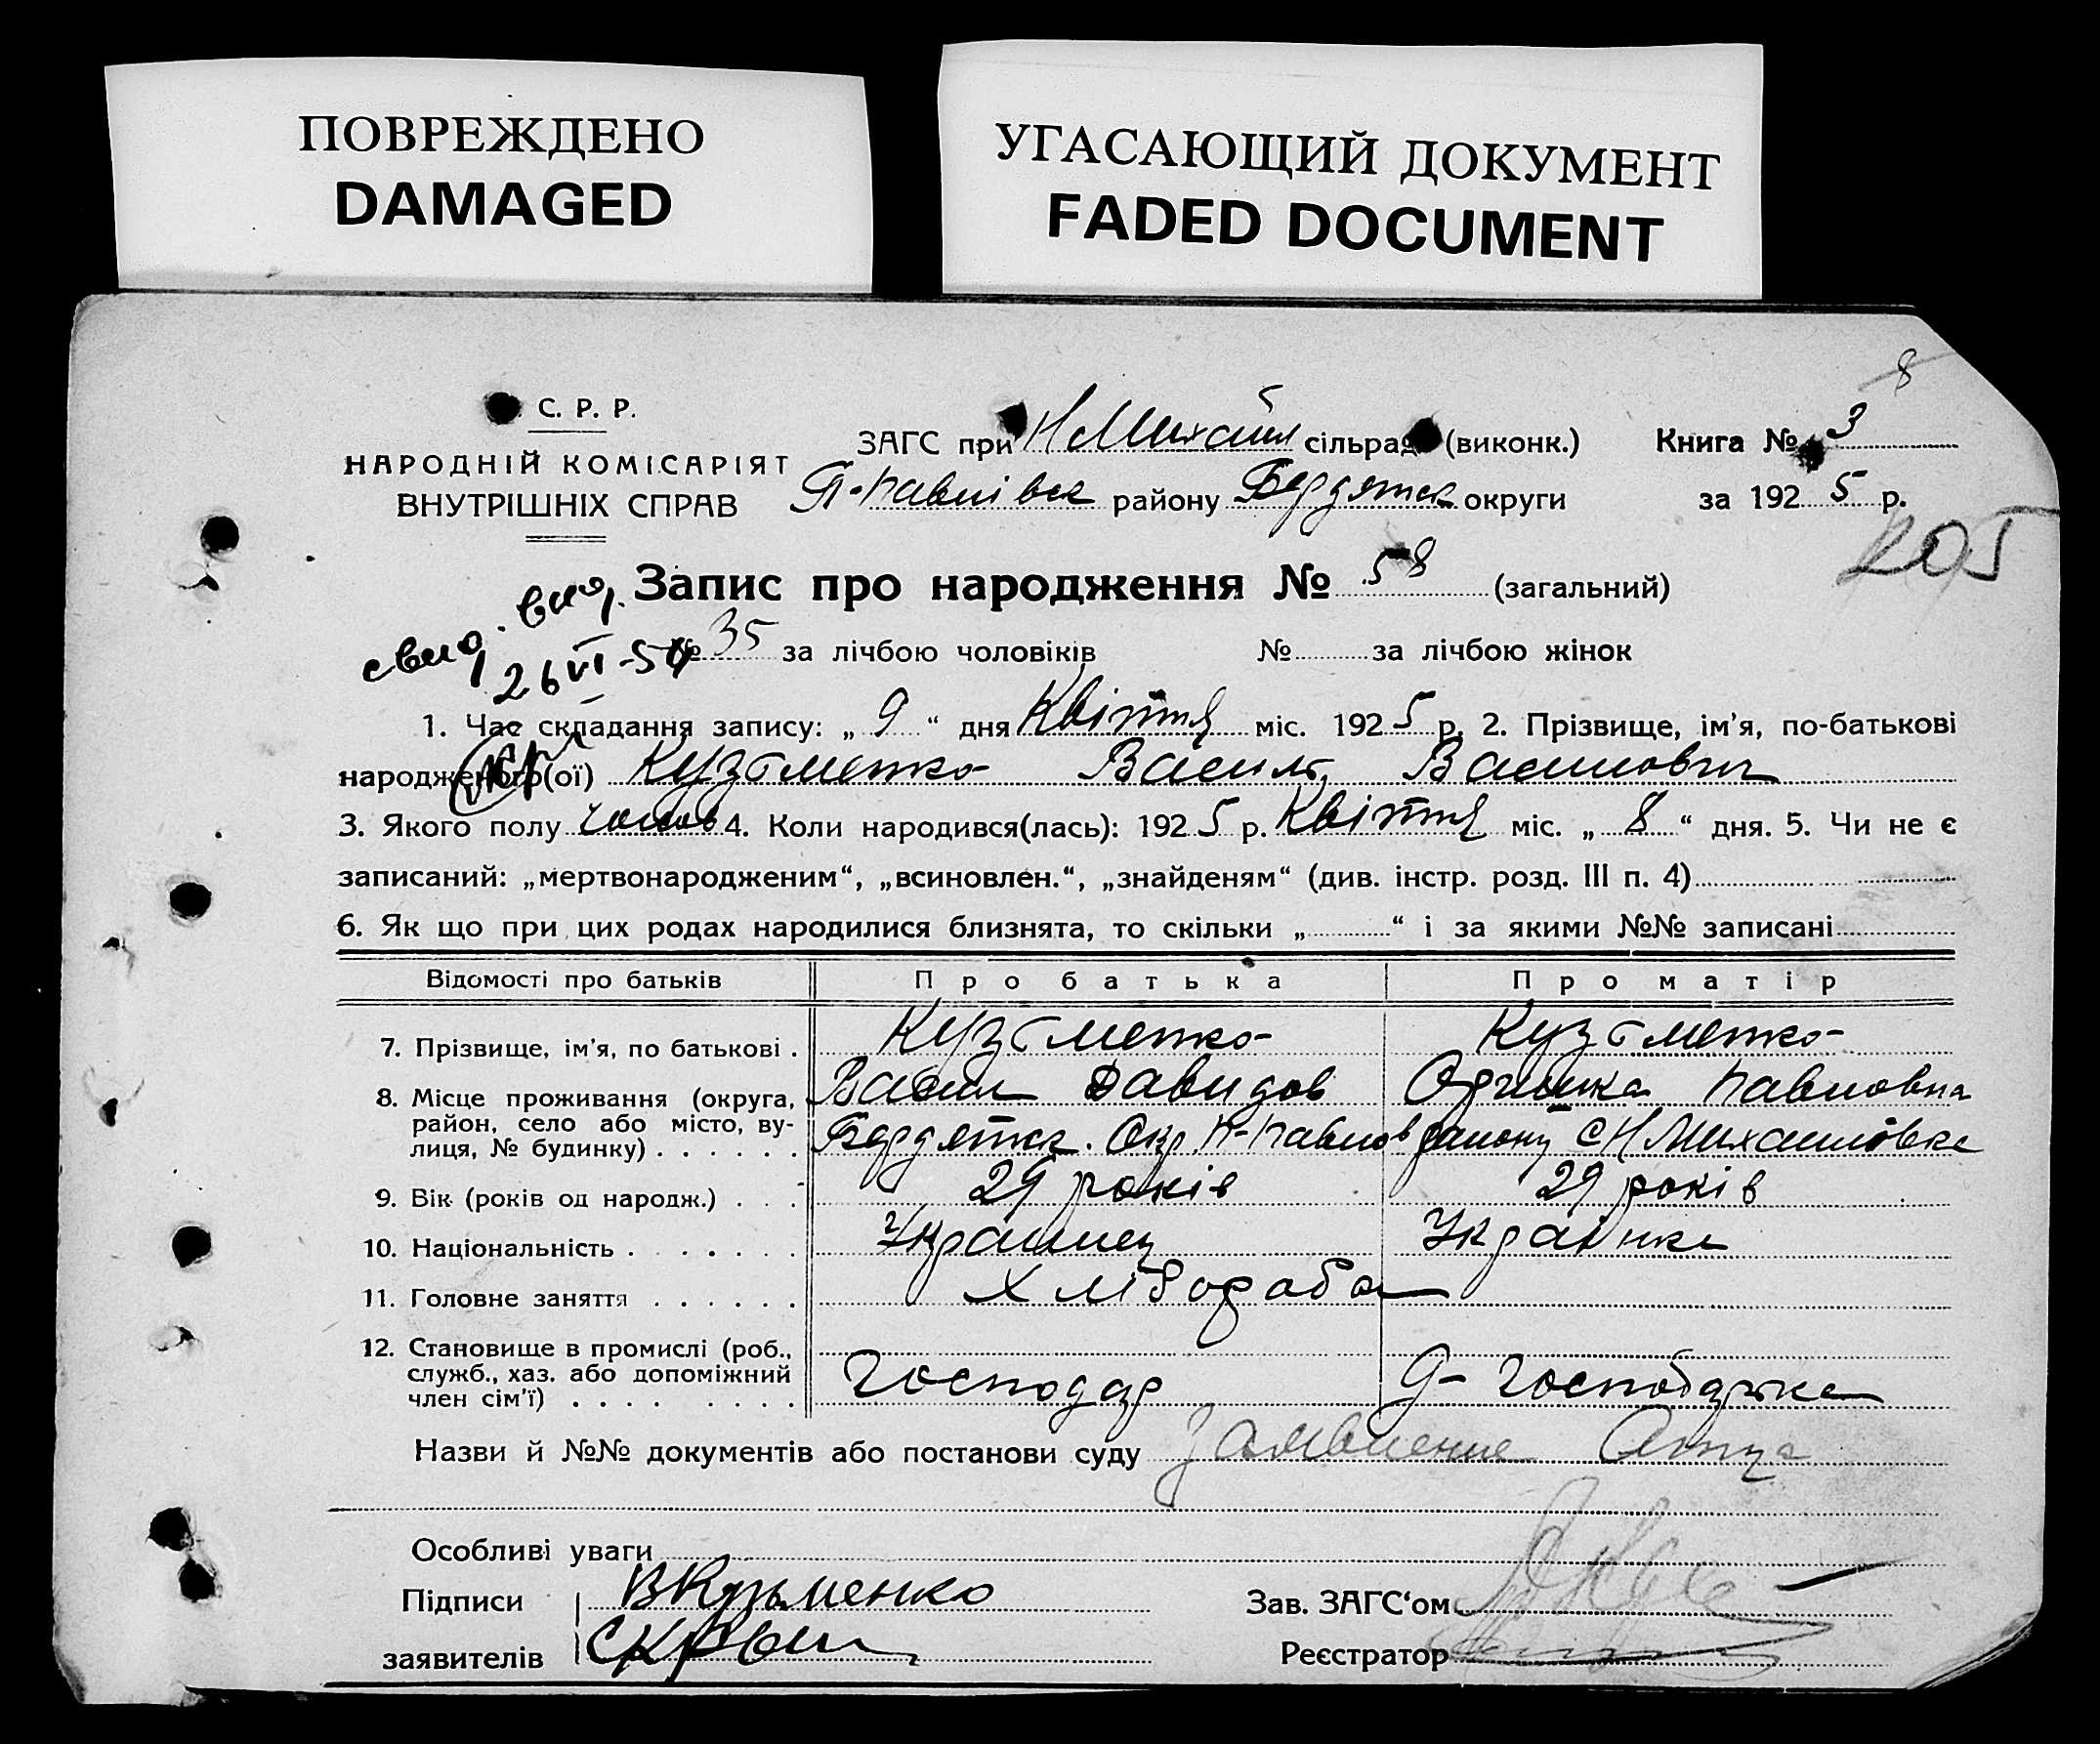 ПОВРЕЖДЕНО
DAMAGED
УГАСАЮЩИЙ ДОКУМЕНТ
FADED DOCUMENT
8
С. Р. Р.
НАРОДНІЙ КОМІСАРІЯТ
ВНУТРІШНІХ СПРАВ
ЗАГС при Н Михайл сільрад (виконк.) Книга № 3
П-Павлівск району Бердянск округи за 1925 р.
205
Запис про народження № 58 (загальний)
свид. выд.
26 VI-54
№ 35 за лічбою чоловіків № за лічбою жінок
1. Час складання запису: „ 9 “ дня Квітня міс. 1925 р. 2. Прізвище, ім'я, по-батькові
народженого(ої) Кузьменко Василь Васильович
3. Якого полу чолов 4. Коли народився(лась): 1925 р. Квітня міс. „ 8 “ дня. 5. Чи не є
записаний: „мертвонародженим“, „всиновлен.“, „знайденям“ (див. інстр. розд. III п. 4)
6. Як що при цих родах народилися близнята, то скільки „ “ і за якими №№ записані
Відомості про батьків Про батька Про матір
7. Прізвище, ім'я, по батькові . Кузьменко Кузьменко
Васил Давидов Оришка Павловна
8. Місце проживання (округа, район, село або місто, вулиця, № будинку) . . . . . . Бердянск. Окр П-Павлов району С Н Михайлівка
9. Вік (років од народж.) . . . 29 років 29 років
10. Національність . . . . . . . Украинец Українка
11. Головне заняття . . . . . . Хлібороба
12. Становище в промислі (роб., служб., хаз. або допоміжний член сім'ї) . . . . . . . . Господар Д- Господарка
Назви й №№ документів або постанови суду Заявление Отца
Особливі уваги
Підписи ВКузьменко Зав. ЗАГС'ом
заявителів Реєстратор